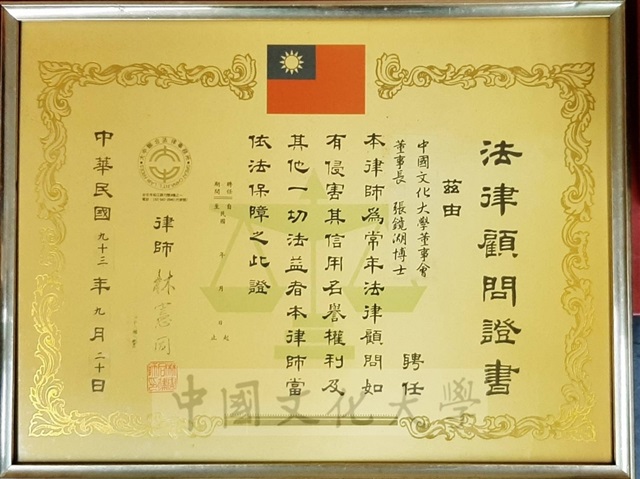 法律顧問證書
茲由
中國文化大學董事會
董事長 張鏡湖博士
聘任
本律師為常年法律顧問如
有侵害其信用名譽權利及
其他一切法益者本律師當
依法保障之此證
聘任 自民國 年 月 日 起
期間 至 止
律師 林憲同
中華民國九十三年九月二十日
中國文化大學